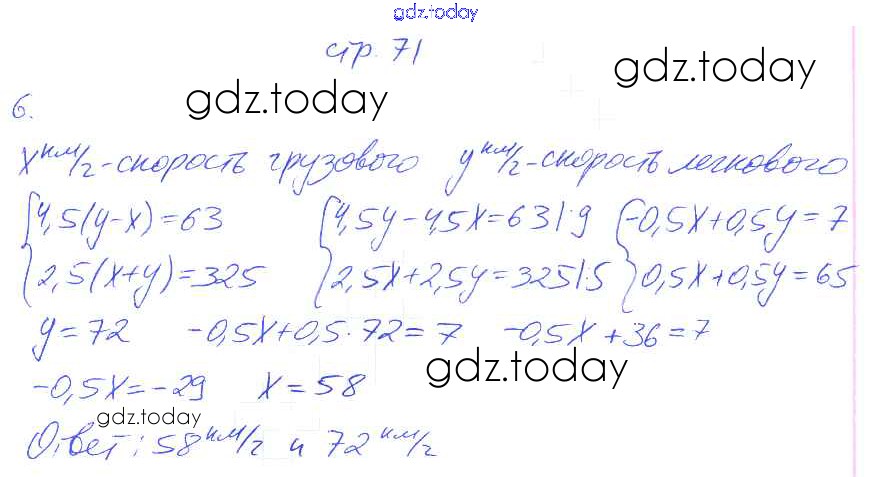 gdz.today
стр. 71
gdz.today
gdz.today
6.
x км/г - скорость грузового y км/г - скорость легкового
{4,5(y-x)=63 {4,5y-4,5x=63|:9 {-0,5x+0,5y=7
{2,5(x+y)=325 {2,5x+2,5y=325|:5 {0,5x+0,5y=65
y=72 -0,5x+0,5·72=7 -0,5x+36=7
gdz.today
-0,5x=-29 x=58
gdz.today
Ответ: 58 км/г и 72 км/г